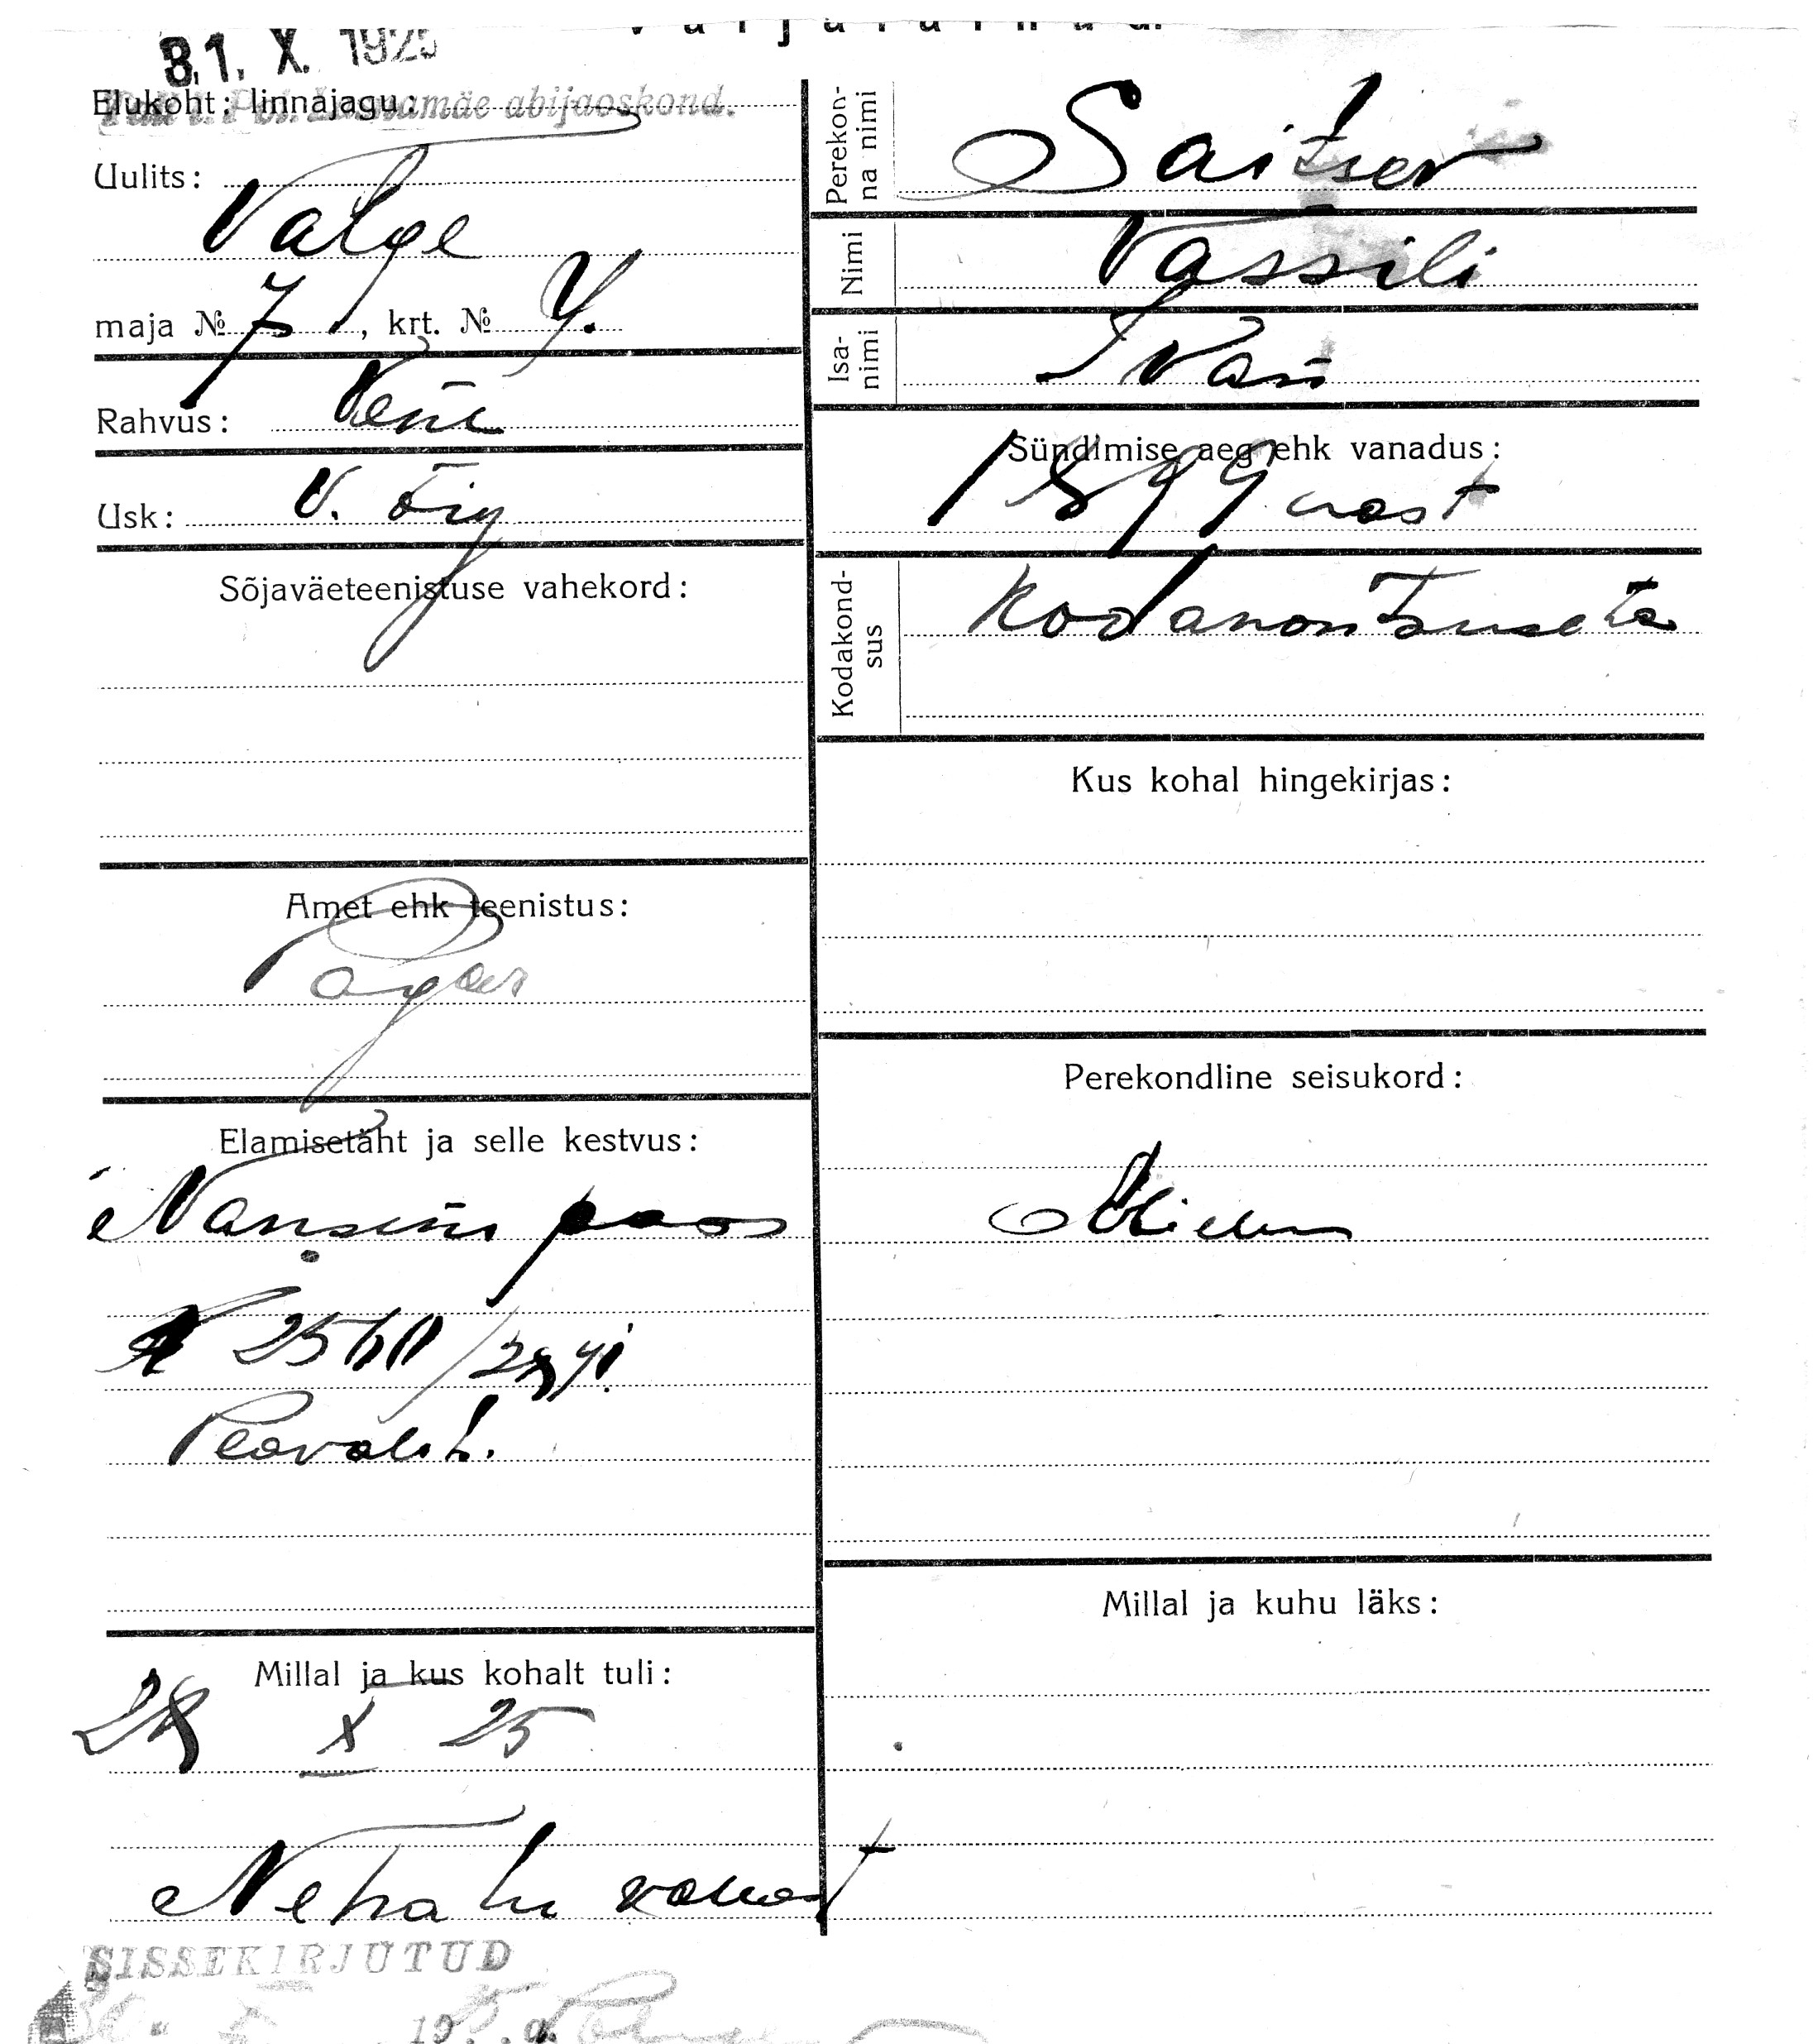 31. X. 1925
Elukoht: linnajagu:
abijaoskond.
Uulits:
Valge
maja № 7, krt. № 4.
Rahvus: Vene
Usk: V. õig
Sõjaväeteenistuse vahekord:
Amet ehk teenistus:
Pagar
Elamisetäht ja selle kestvus:
Nanseni pass
Peavalits.
Millal ja kus kohalt tuli:
28 X 25
Nehatu vallast
SISSEKIRJUTUD
Perekonna nimi
Saitsev
Nimi
Vassili
Isanimi
Ivan
Sündimise aeg ehk vanadus:
1899 aast
Kodakondsus
Kodakontsuseta
Kus kohal hingekirjas:
Perekondline seisukord:
Millal ja kuhu läks: